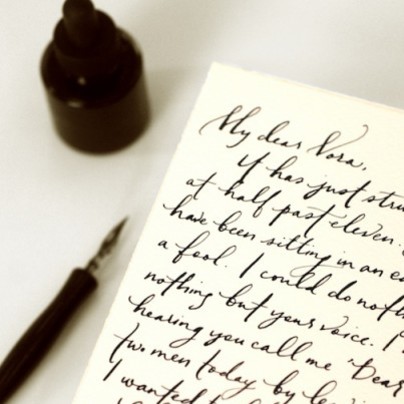 My dear Nora,
It has just stru
at half past eleven.
have been sitting in an ea
a fool. I could do noth
nothing but your voice. I
hearing you call me "Dear
two men today by le
I wanted